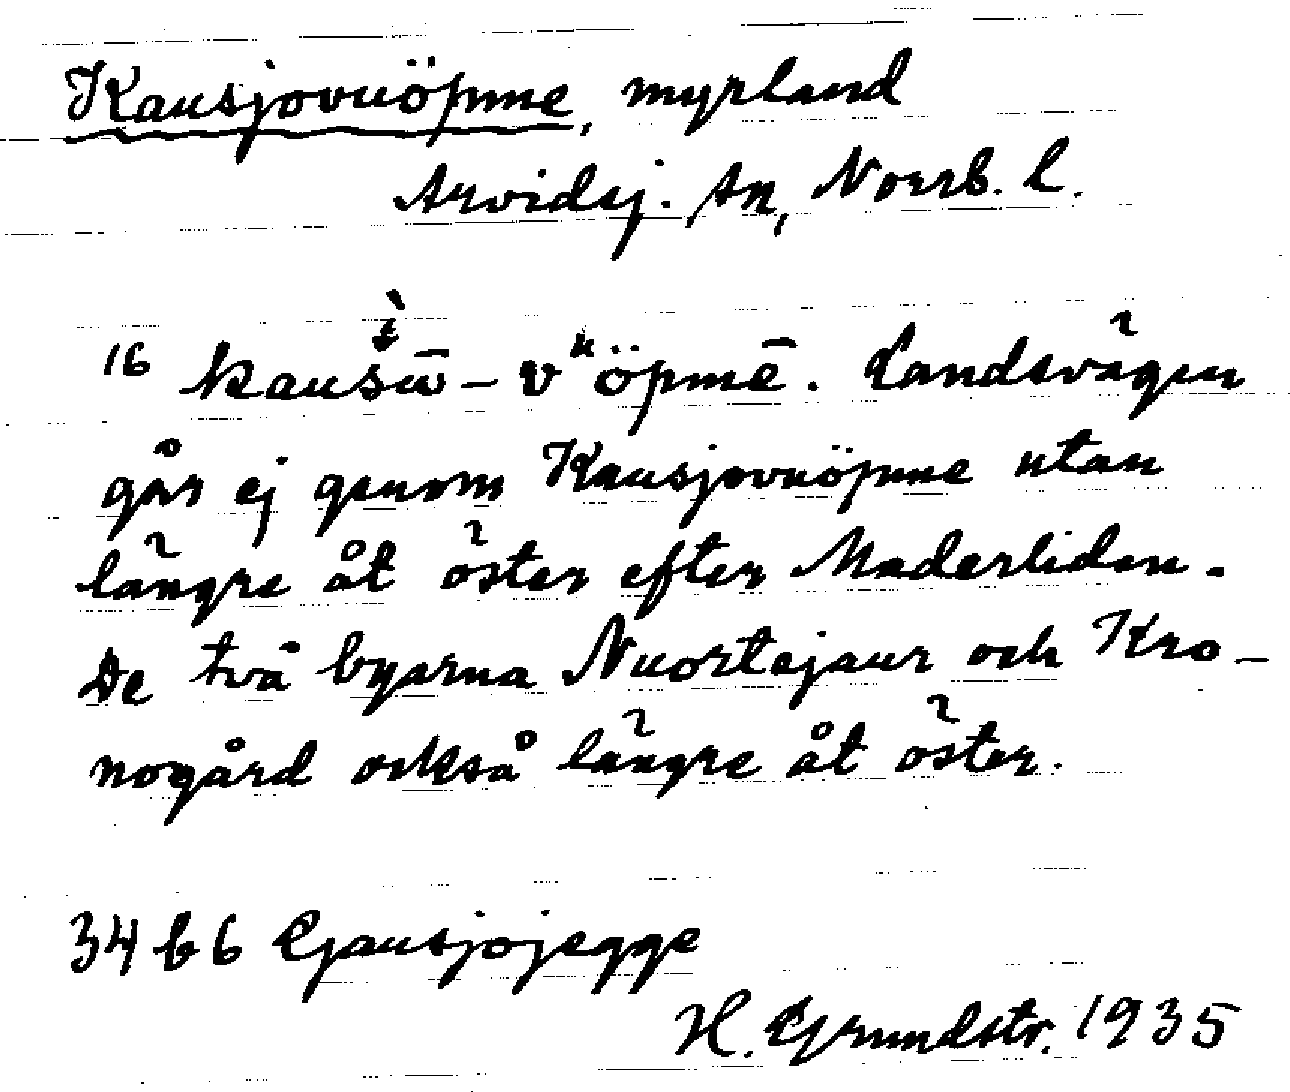 Kausjovuöpme, myrland
Arvidsj. sn, Norrb. l.
16 kauśū̄ - vᵘöpmē. Landsvägen
går ej genom Kausjovuöpme utan
längre åt öster efter Maderliden.
De två byarna Nuortejaur och Kro-
nogård också längre åt öster.
34 b 6 Gausjojegge
H. Grundstr. 1935